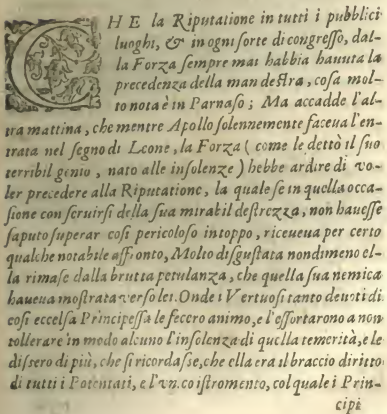 CHE la Riputatione in tutti i pubblici
luoghi, & in ogni sorte di congresso, dal-
la Forza sempre mai habbia hauuta la
precedenza della man destra, cosa mol-
to nota è in Parnaso; Ma accadde l'al-
tra mattina, che mentre Apollo solennemente faceua l'en-
trata nel segno di Leone, la Forza (come le dettò il suo
terribil genio, nato alle insolenze) hebbe ardire di vo-
ler precedere alla Riputatione, la quale se in quella occa-
sione con seruirsi della sua mirabil destrezza, non hauesse
saputo superar così pericoloso intoppo, riceueua per certo
qualche notabile affronto, Molto disgustata nondimeno el-
la rimase dalla brutta petulanza, che quella sua nemica
haueua mostrata verso lei. Onde i Vertuosi tanto deuoti di
così eccelsa Principessa le fecero animo, e l'essortarono a non
tollerare in modo alcuno l'insolenza di quella temerità, e le
dissero di più, che si ricordasse, che ella era il braccio diritto
di tutti i Potentati, e l'vnico istromento, col quale i Prin-
cipi